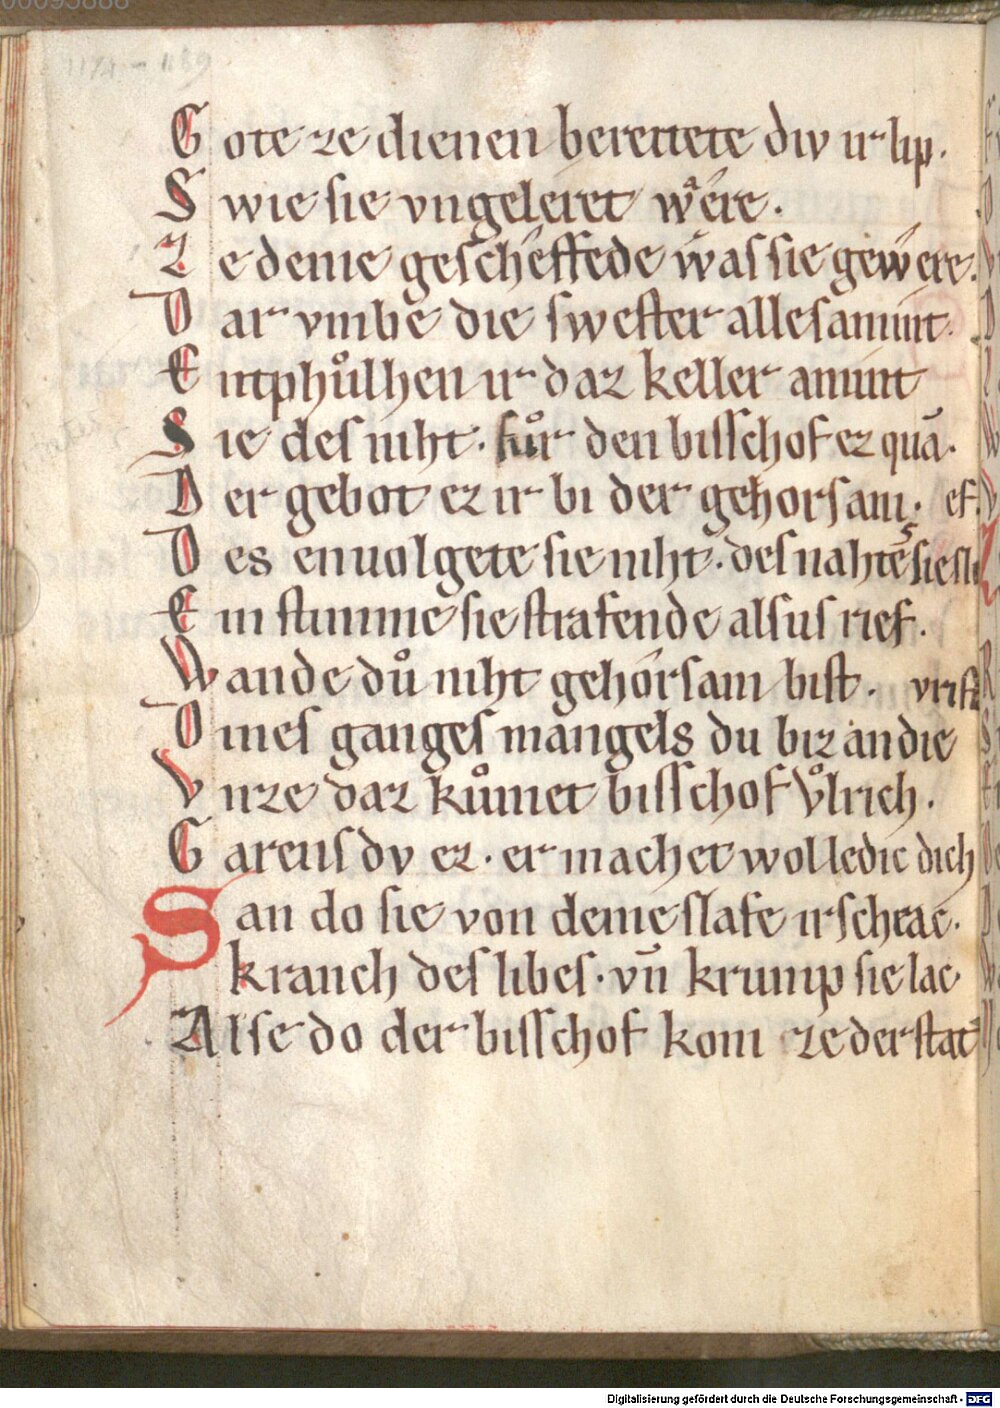 00095888
1174 – 1189
Gote ze dienen berettete div ir lip.
Swie sie vngeleret wͣere.
Ze deme gescheffede was sie gewere.
Dar vmbe die swester allesamint.
Entphuͦlhen ir daz keller amint
Sie des niht. fuͦr den bisschof ez quā.
Der gebot ez ir bi der gehorsam.
Des enuolgete sie niht. des nahtes sie slief.
Ein stimme sie strafende alsus rief.
Wande duͦ niht gehorsam bist.
Dines ganges mangels du biz an die vrist
Vnze daz kuͦmet bisschof Vͦlrich.
Gareus dv ez. er machet wolledic dich
San do sie von deme slafe irschrac.
kranch des libes. vn̄ krump sie lac
Alse do der bisschof kom ze der stat
Digitalisierung gefördert durch die Deutsche Forschungsgemeinschaft - DFG